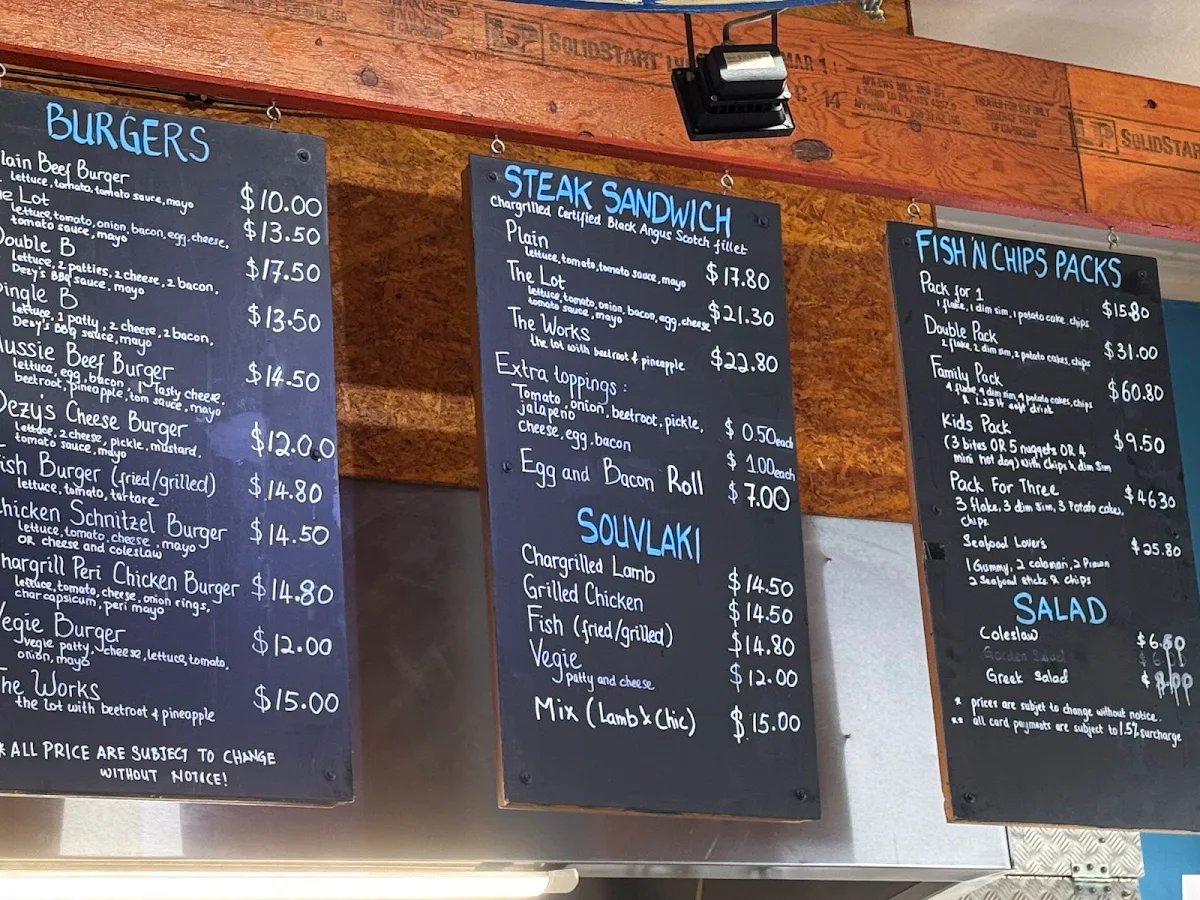 SOLIDSTART
LP SOLIDSTAR
BURGERS
lain Beef Burger $10.00
lettuce, tomato, tomato sauce, mayo
he Lot $13.50
lettuce, tomato, onion, bacon, egg, cheese,
tomato sauce, mayo
Double B $17.50
lettuce, 2 patties, 2 cheese, 2 bacon,
Dezy's BBQ sauce, mayo
ingle B $13.50
lettuce, 1 patty, 2 cheese, 2 bacon,
Dezy's BBQ sauce, mayo
ussie Beef Burger $14.50
lettuce, egg, bacon, Tasty cheese,
beetroot, pineapple, tom sauce, mayo
Dezy's Cheese Burger $12.00
lettuce, 2 cheese, pickle, mustard,
tomato sauce, mayo
ish Burger (fried/grilled) $14.80
lettuce, tomato, tartare
hicken Schnitzel Burger $14.50
lettuce, tomato, cheese, mayo
OR cheese and coleslaw
hargrill Peri Chicken Burger $14.80
lettuce, tomato, cheese, onion rings,
charcapsicum, peri mayo
Vegie Burger $12.00
vegie patty, cheese, lettuce, tomato,
onion, mayo
The Works $15.00
the lot with beetroot & pineapple
* ALL PRICE ARE SUBJECT TO CHANGE
WITHOUT NOTICE!
STEAK SANDWICH
Chargrilled Certified Black Angus Scotch fillet
Plain $17.80
lettuce, tomato, tomato sauce, mayo
The Lot $21.30
lettuce, tomato, onion, bacon, egg, cheese
tomato sauce, mayo
The Works $22.80
the lot with beetroot & pineapple
Extra toppings :
Tomato, onion, beetroot, pickle, $ 0.50 each
jalapeno
cheese, egg, bacon $ 1.00 each
Egg and Bacon Roll $ 7.00
SOUVLAKI
Chargrilled Lamb $14.50
Grilled Chicken $14.50
Fish (fried/grilled) $14.80
Vegie $12.00
patty and cheese
Mix (Lamb & Chic) $15.00
FISH 'N CHIPS PACKS
Pack for 1 $15.80
1 flake, 1 dim sim, 1 potato cake, chips
Double Pack $31.00
2 flake, 2 dim sim, 2 potato cakes, chips
Family Pack $60.80
4 flake, 4 dim sim, 4 potato cakes, chips
& 1.25 lt soft drink
Kids Pack $9.50
(3 bites OR 5 nuggets OR 4
mini hot dog) with chips & dim sim
Pack For Three $46.30
3 flake, 3 dim sim, 3 Potato cakes,
chips.
Seafood Lover's $25.80
1 Gummy, 2 calamari, 2 Prawn
2 Seafood sticks & chips
SALAD
Coleslaw
Garden Salad
Greek Salad
* prices are subjet to change without notice.
** all card payments are subject to 1.5% surcharge